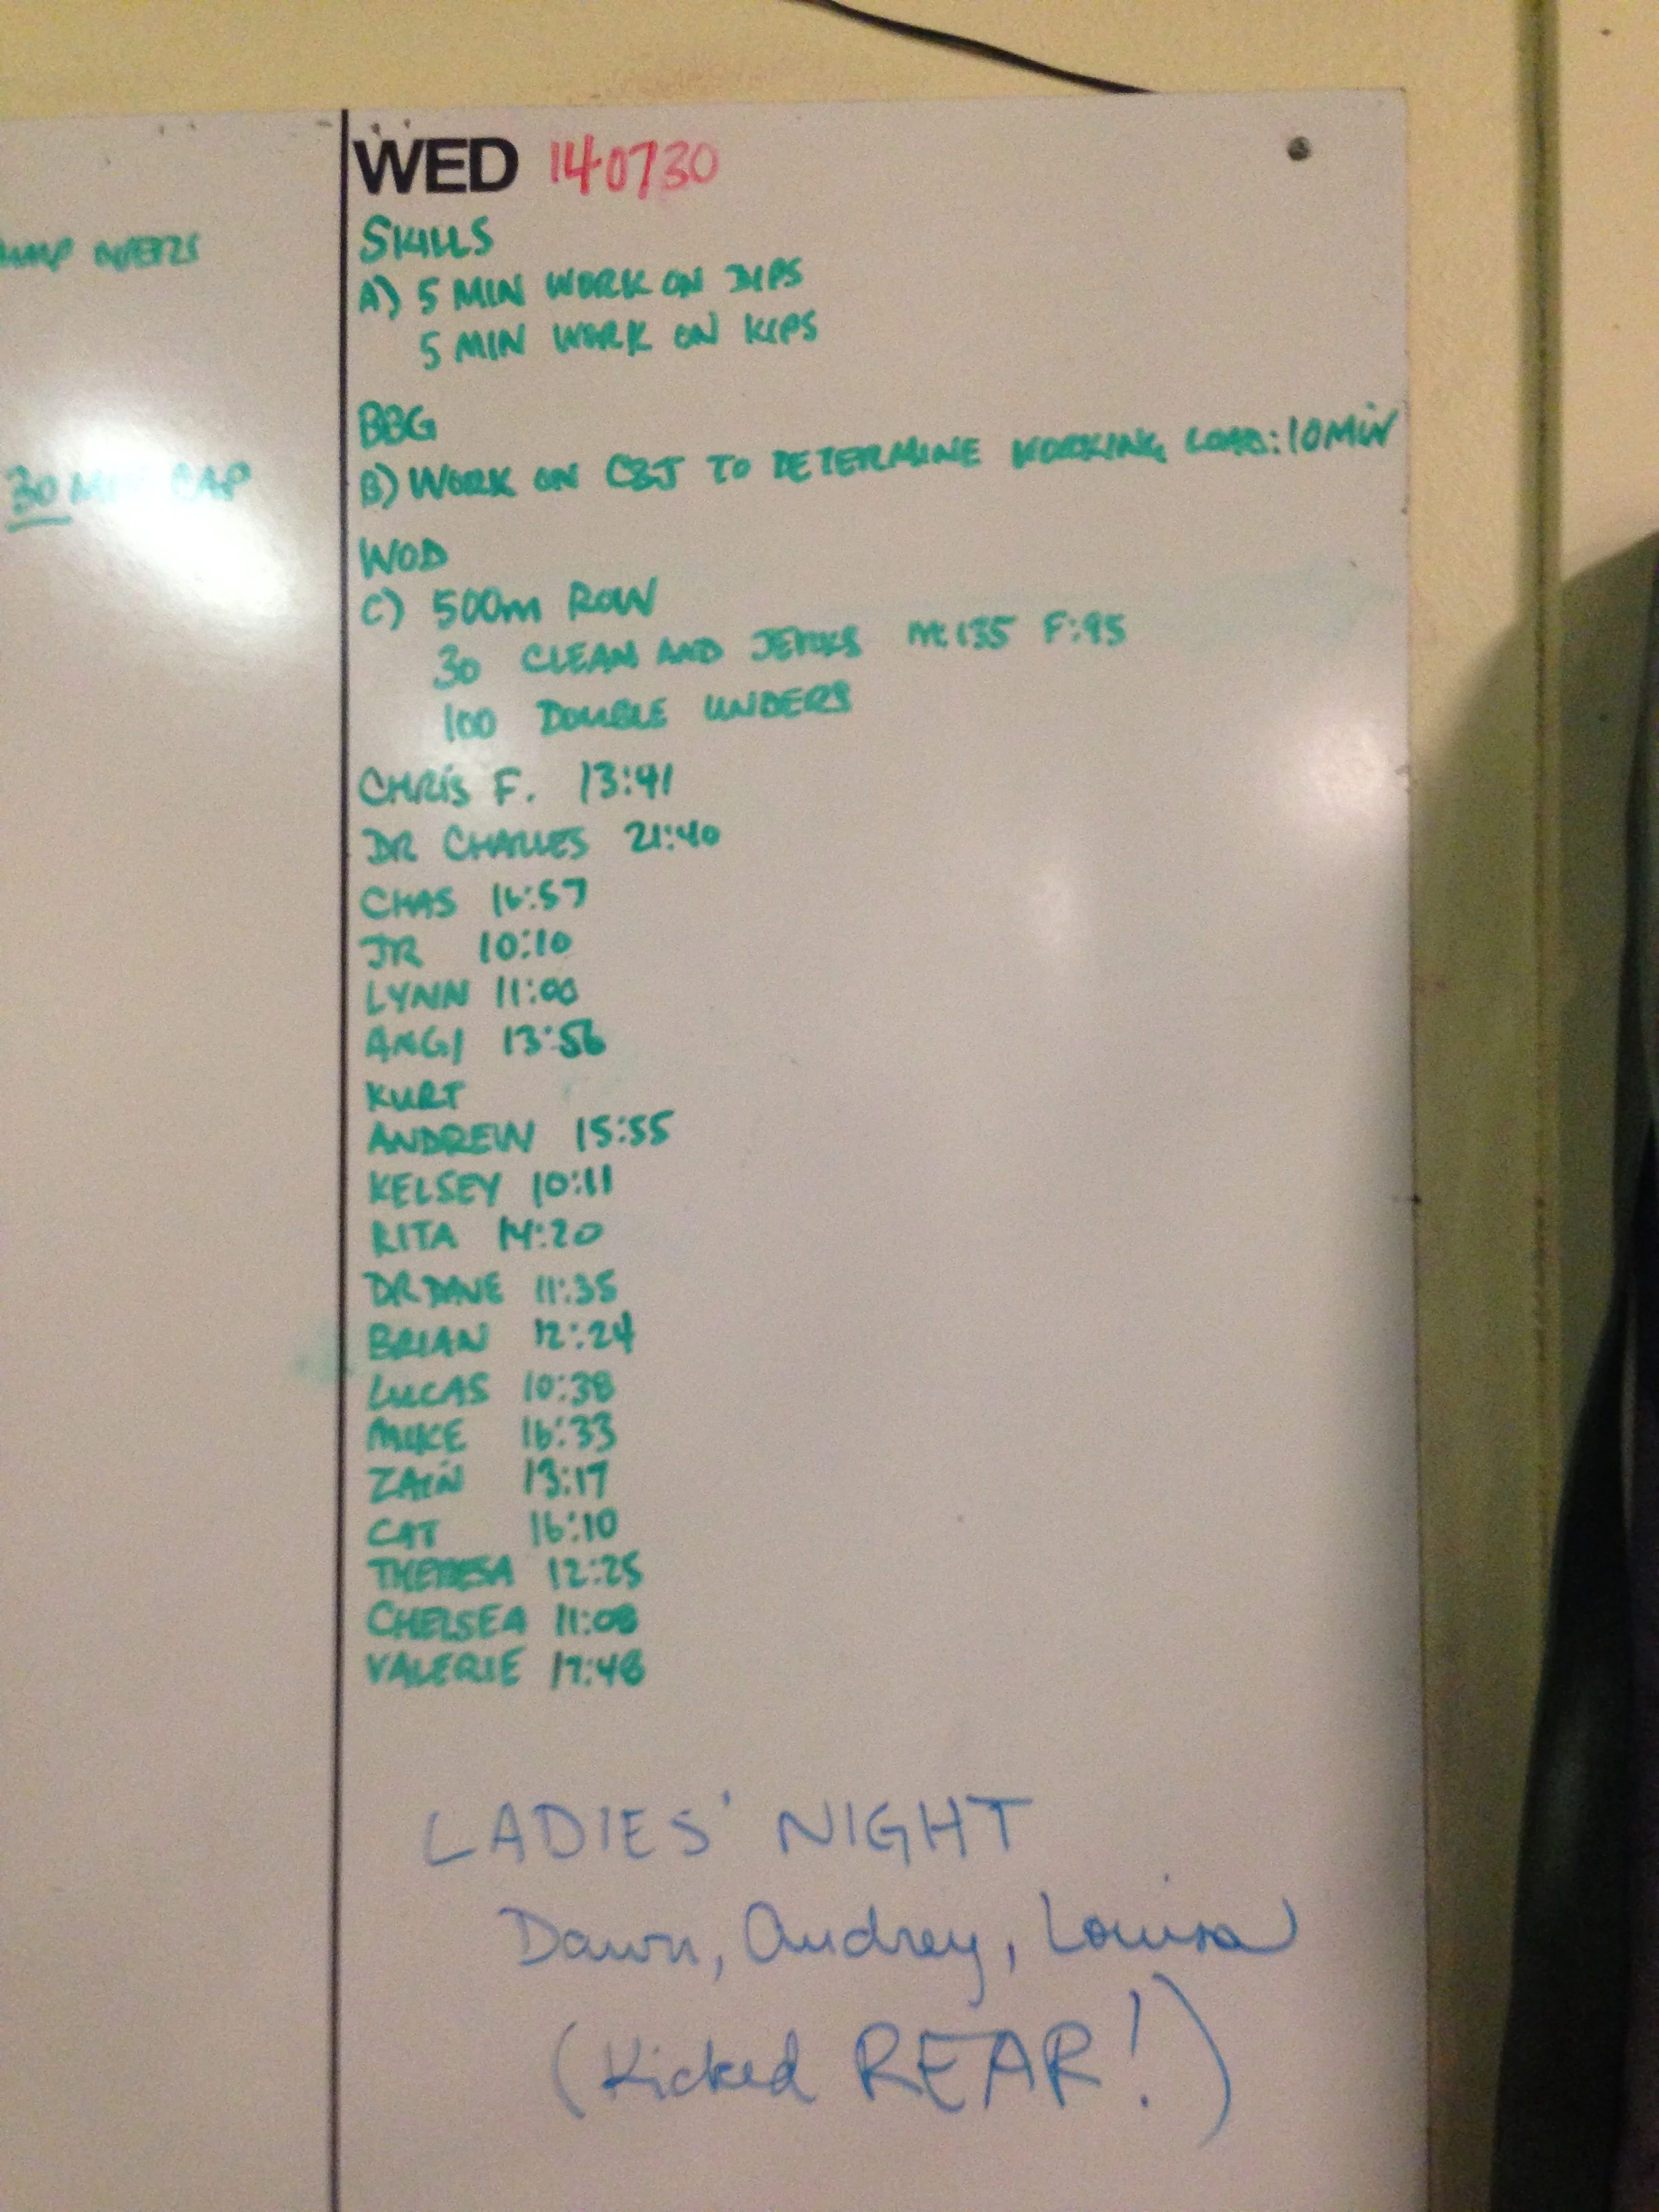 WED 140730
SKILLS
A) 5 MIN WORK ON DIPS
5 MIN WORK ON KIPS
30 MIN CAP
BBG
B) WORK ON C&J TO DETERMINE WORKING LOAD: 10 MIN
WOD
C) 500m ROW
30 CLEAN AND JERKS M: 135 F: 95
100 DOUBLE UNDERS
CHRIS F. 13:41
DR CHARLES 21:40
CHAS 16:57
JR 10:10
LYNN 11:00
ANGI 13:56
KURT
ANDREW 15:55
KELSEY 10:11
RITA 14:20
DR DANE 11:35
BRIAN 12:24
LUCAS 10:38
MIKE 16:33
ZAIN 13:17
CAT 16:10
THERESA 12:25
CHELSEA 11:08
VALERIE 17:48
LADIES' NIGHT
Dawn, Audrey, Louisa
(Kicked REAR!)